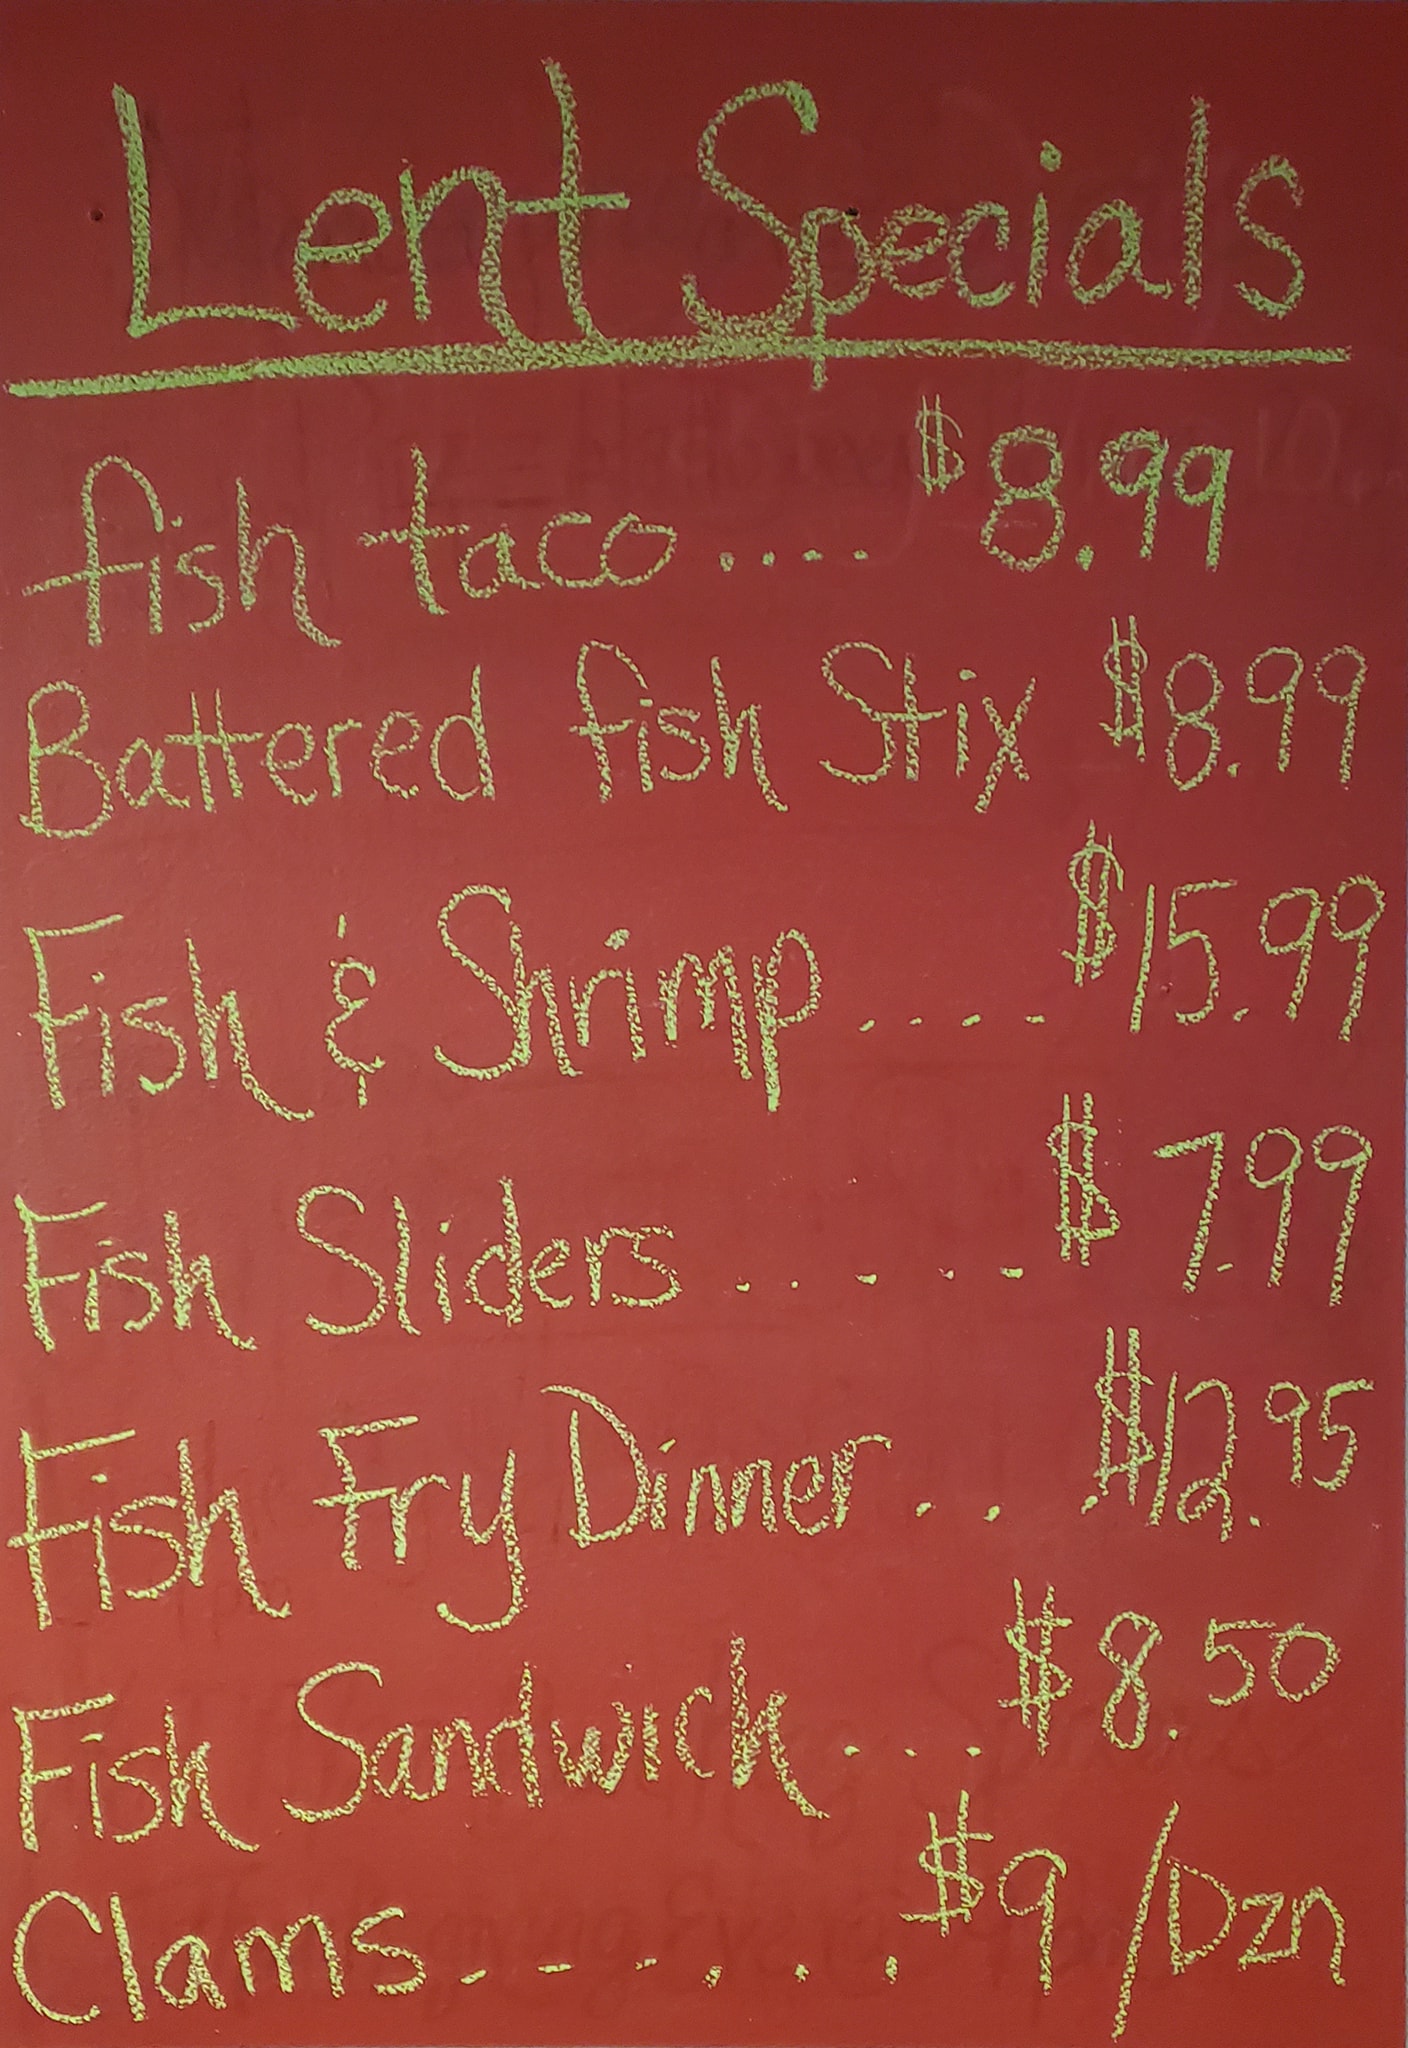 Lent Specials
fish taco.... $8.99
Battered fish Stix $8.99
Fish & Shrimp.... $15.99
Fish Sliders..... $7.99
Fish Fry Dinner... $12.95
Fish Sandwich... $8.50
Clams...... $9/Dzn